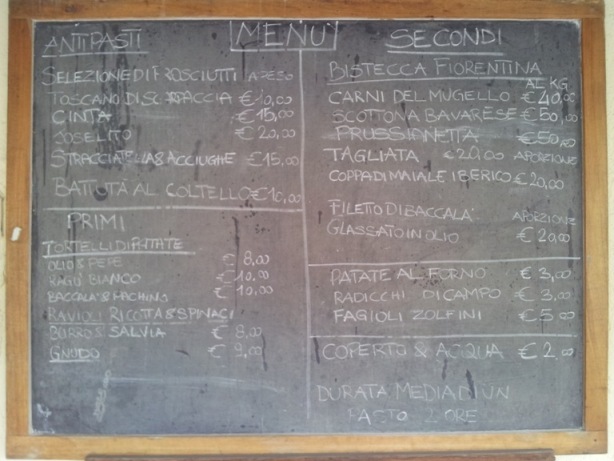 MENU'
ANTIPASTI
SELEZIONE DI PROSCIUTTI A PESO
TOSCANO DI SCARPACCIA €10,00
CINTA €15,00
JOSELITO €20,00
STRACCIATELLA & ACCIUGHE €15,00
BATTUTA AL COLTELLO €10,00
PRIMI
TORTELLI DI PATATE
OLIO & PEPE € 8,00
RAGU' BIANCO € 10,00
BACCALA' & € 10,00
RAVIOLI RICOTTA & SPINACI
BURRO & SALVIA € 8,00
GNUDO € 9,00
4
SECONDI
BISTECCA FIORENTINA
AL KG
CARNI DEL MUGELLO €40,00
SCOTTONA BAVARESE €50,00
PRUSSIANETTA €50,00
TAGLIATA €20,00 A PORZIONE
COPPA DI MAIALE IBERICO €20,00
FILETTO DI BACCALA' A PORZIONE
GLASSATO IN OLIO € 20,00
PATATE AL FORNO € 3,00
RADICCHI DI CAMPO € 3,00
FAGIOLI ZOLFINI € 5,00
COPERTO & ACQUA € 2,00
DURATA MEDIA DI UN
PASTO 2 ORE